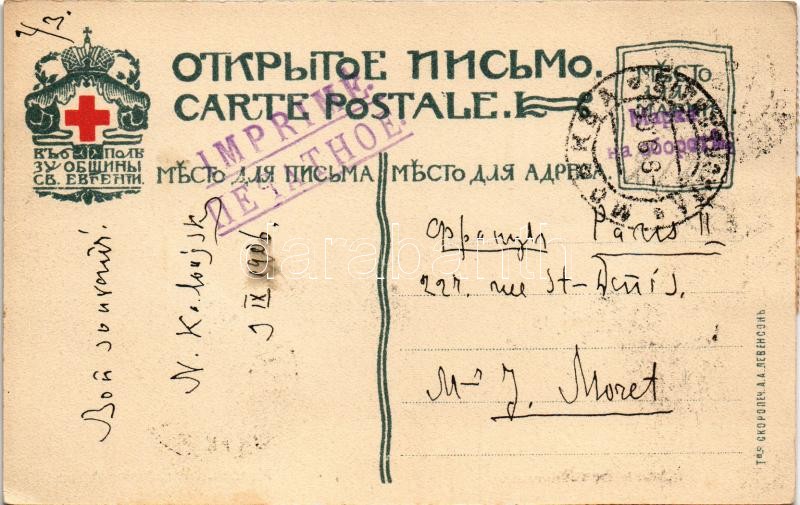 ОТКРЫТОЕ ПИСЬМО.
CARTE POSTALE.
ВЪ ПОЛЬ
ЗУ ОБЩИНЫ
СВ. ЕВГЕНІИ.
IMPRIMÉ.
ПЕЧАТНОЕ.
МѢСТО
ДЛЯ
МАРКИ
Марка
на оборотѣ
МОСКВА
МѢСТО ДЛЯ ПИСЬМА
МѢСТО ДЛЯ АДРЕСА.
Bon souvenir.
N.
IX 1906.
Франція Paris II
227. rue St-Denis.
Mr J. Moret
Т-во СКОРОПЕЧ. А.А. ЛЕВЕНСОНЪ
darabanth